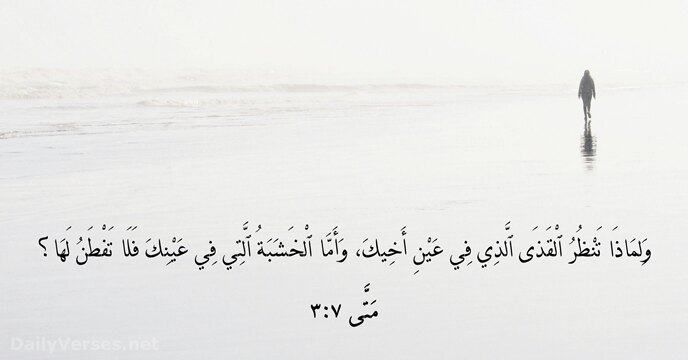 وَلِمَاذَا تَنْظُرُ ٱلْقَذَى ٱلَّذِي فِي عَيْنِ أَخِيكَ، وَأَمَّا ٱلْخَشَبَةُ ٱلَّتِي فِي عَيْنِكَ فَلَا تَفْطَنُ لَهَا؟
مَتَّى ٣:٧
DailyVerses.net